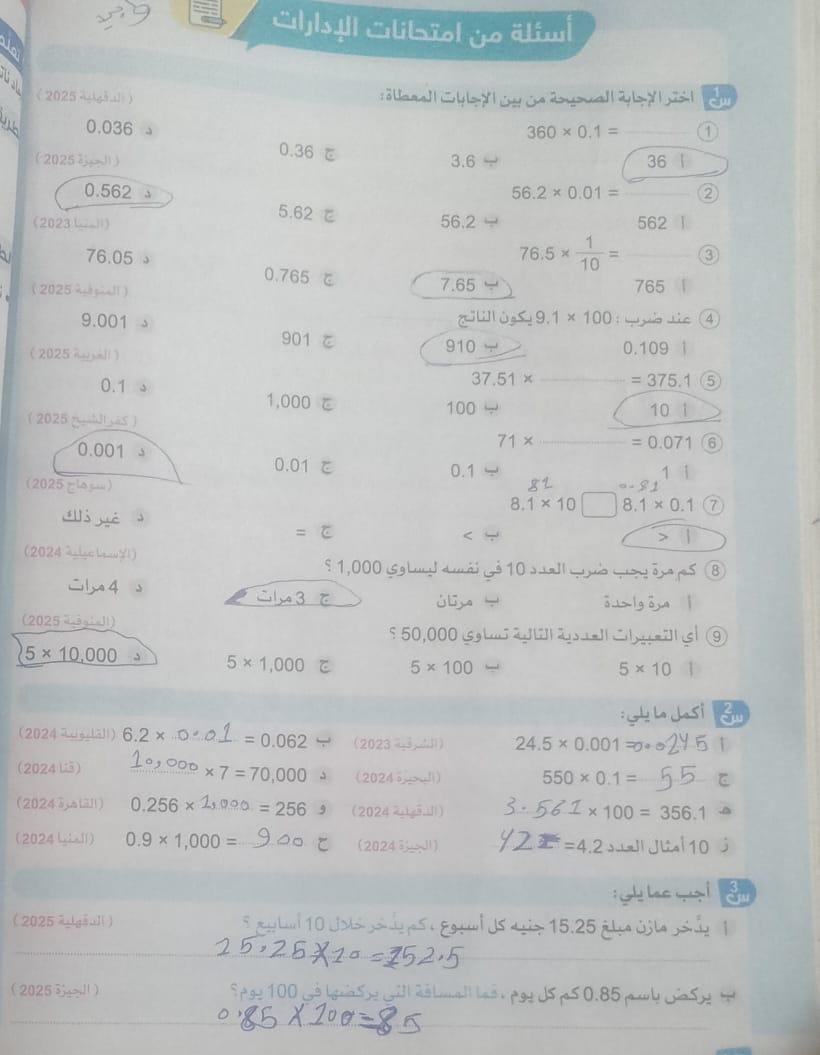 أسئلة من امتحانات الإدارات
س1 اختر الإجابة الصحيحة من بين الإجابات المعطاة:
① 360 × 0.1 = (الدقهلية 2025)
أ 36 ب 3.6 ج 0.36 د 0.036
② 56.2 × 0.01 = (الجيزة 2025)
أ 562 ب 56.2 ج 5.62 د 0.562
③ 76.5 × 1/10 = (المنيا 2023)
أ 765 ب 7.65 ج 0.765 د 76.05
④ عند ضرب : 100 × 9.1 يكون الناتج (المنوفية 2025)
أ 0.109 ب 910 ج 901 د 9.001
⑤ 37.51 × = 375.1 (الغربية 2025)
أ 10 ب 100 ج 1,000 د 0.1
⑥ 71 × = 0.071 (كفر الشيخ 2025)
أ 1 ب 0.1 ج 0.01 د 0.001
81 0.81
⑦ 8.1 × 10 8.1 × 0.1 (سوهاج 2025)
أ > ب < ج = د غير ذلك
⑧ كم مرة يجب ضرب العدد 10 في نفسه ليساوي 1,000 ؟ (الإسماعيلية 2024)
أ مرة واحدة ب مرتان ج 3 مرات د 4 مرات
⑨ أي التعبيرات العددية التالية تساوي 50,000 ؟ (المنوفية 2025)
أ 5 × 10 ب 5 × 100 ج 5 × 1,000 د 5 × 10,000
س2 أكمل ما يلي:
أ 24.5 × 0.001 = 0.0245 (الشرقية 2023) ب 6.2 × 0.01 = 0.062 (القليوبية 2024)
ج 550 × 0.1 = 55 (البحيرة 2024) د 10,000 × 7 = 70,000 (قنا 2024)
هـ 3.561 × 100 = 356.1 (الدقهلية 2024) و 0.256 × 1,000 = 256 (القاهرة 2024)
ز 10 أمثال العدد 4.2 = 42 (الجيزة 2024) ح 0.9 × 1,000 = 900 (المنيا 2024)
س3 أجب عما يلي:
أ يدَّخر مازن مبلغ 15.25 جنيه كل أسبوع ، كم يدَّخر خلال 10 أسابيع ؟ (الدقهلية 2025)
15.25 × 10 = 152.5
ب يركض باسم 0.85 كم كل يوم ، فما المسافة التي يركضها في 100 يوم؟ (الجيزة 2025)
0.85 × 100 = 85